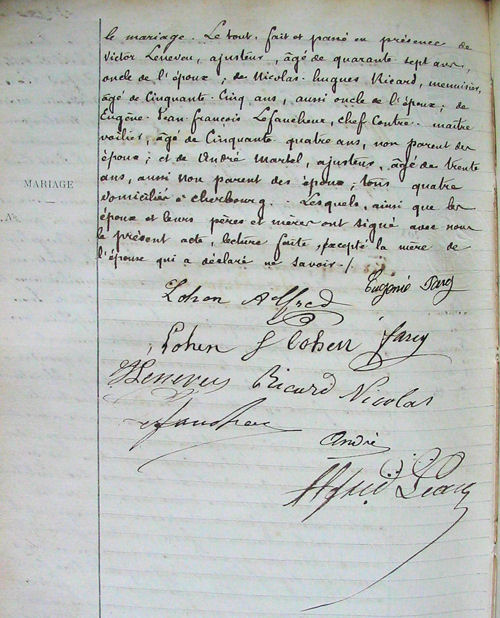 le mariage. Le tout fait et passé en présence de
Victor Leneveu, ajusteur, âgé de quarante sept ans,
oncle de l'époux; de Nicolas hugues Ricard, menuisier,
âgé de Cinquante Cinq ans, aussi oncle de l'époux; de
Eugène Jean François, chef Contre-maître
voilier, âgé de Cinquante quatre ans, non parent des
époux; et de André Martel, ajusteur, âgé de trente
ans, aussi non parent des époux; tous quatre
domiciliés à Cherbourg. Lesquels, ainsi que les
époux et leurs pères et mères ont signé avec nous
le présent acte, lecture faite, excepté la mère de
l'épouse qui a déclaré ne savoir./.
MARIAGE
Eugénie Farcy
Cohen Alfred
Cohen S Cohen farcy
V Leneveu Ricard Nicolas
André
Alfred